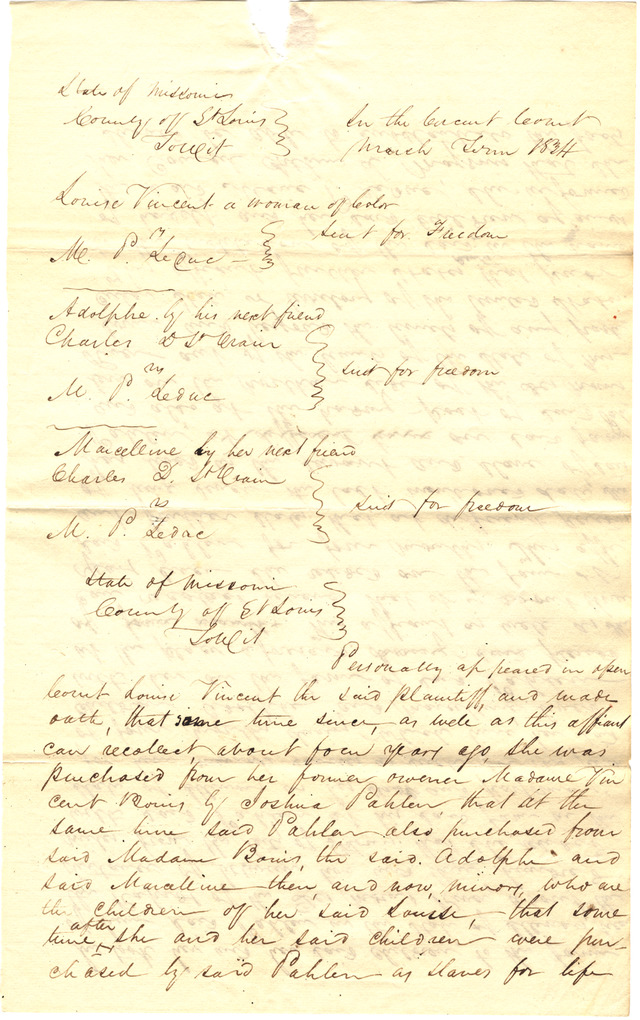 State of Missouri
County of St Louis
To Wit
In the Circuit Court
March Term 1834
Louise Vincent a woman of Color
vs
M. P. Leduc
Suit for Freedom
Adolphe by his next friend
Charles D St Vrain
vs
M. P. Leduc
suit for freedom
Marcelline by her next friend
Charles D. St Vrain
vs
M. P. Leduc
suit for freedom
State of Missouri
County of St Louis
To Wit
Personally appeared in open
Court Louise Vincent the said plaintiff, and made
oath, that some time since, as well as this affiant
can recollect, about four years ago, she was
purchased from her former owner Madame Vin
cent Bouis by Joshua Pahlen, that at the
same time said Pahlen also purchased from
said Madame Bouis, the said. Adolphe and
said Marcelline then, and now, minors, who are
the children of her said Louise, that some
time after she and her said children were pur
chased by said Pahlen as slaves for life